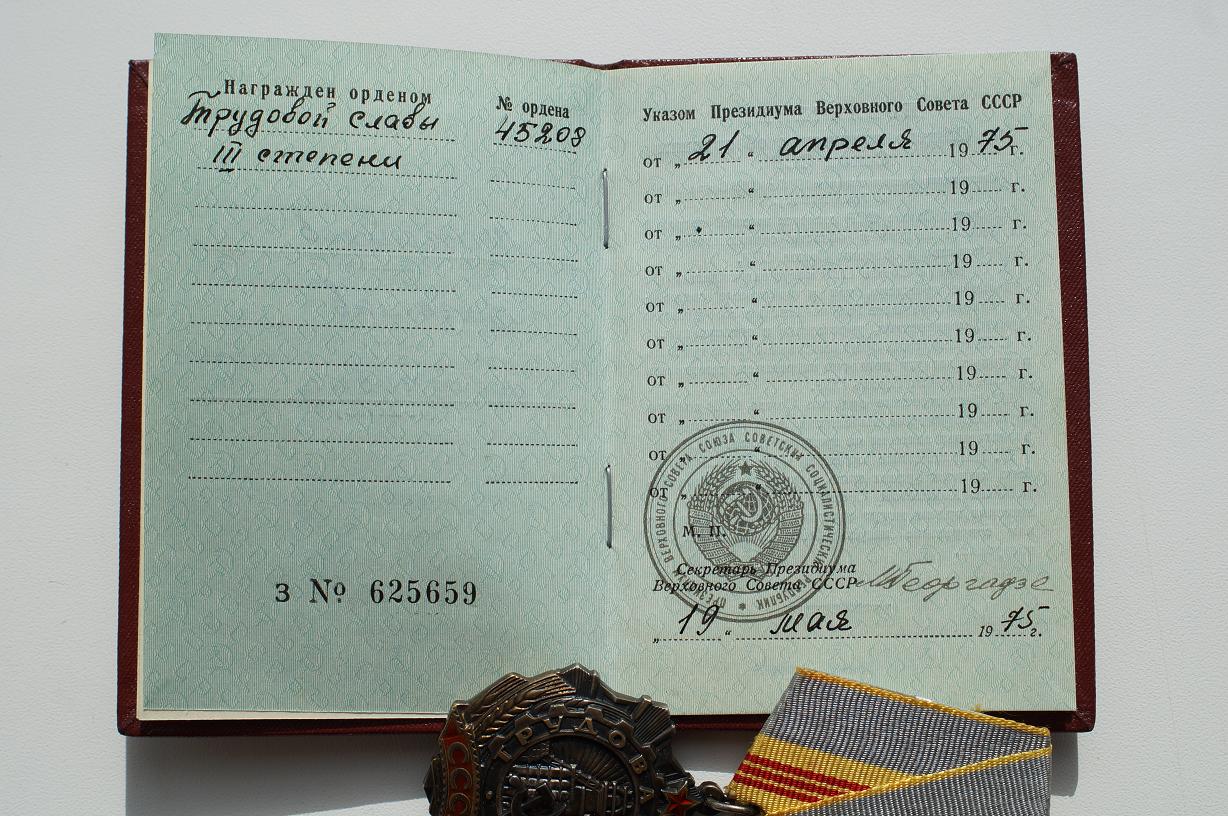 Награжден орденом
Трудовой славы
III степени
№ ордена
45208
З № 625659
Указом Президиума Верховного Совета СССР
от „ 21 “ апреля 1975 г.
от „ “ 19 г.
от „ “ 19 г.
от „ “ 19 г.
от „ “ 19 г.
от „ “ 19 г.
от „ “ 19 г.
от „ “ 19 г.
от „ “ 19 г.
от „ “ 19 г.
М. П.
Секретарь Президиума
Верховного Совета СССР МГеоргадзе
„ 19 “ мая 1975 г.
ВЕРХОВНОГО СОВЕТА СОЮЗА СОВЕТСКИХ СОЦИАЛИСТИЧЕСКИХ РЕСПУБЛИК
ТРУДОВ
ССС